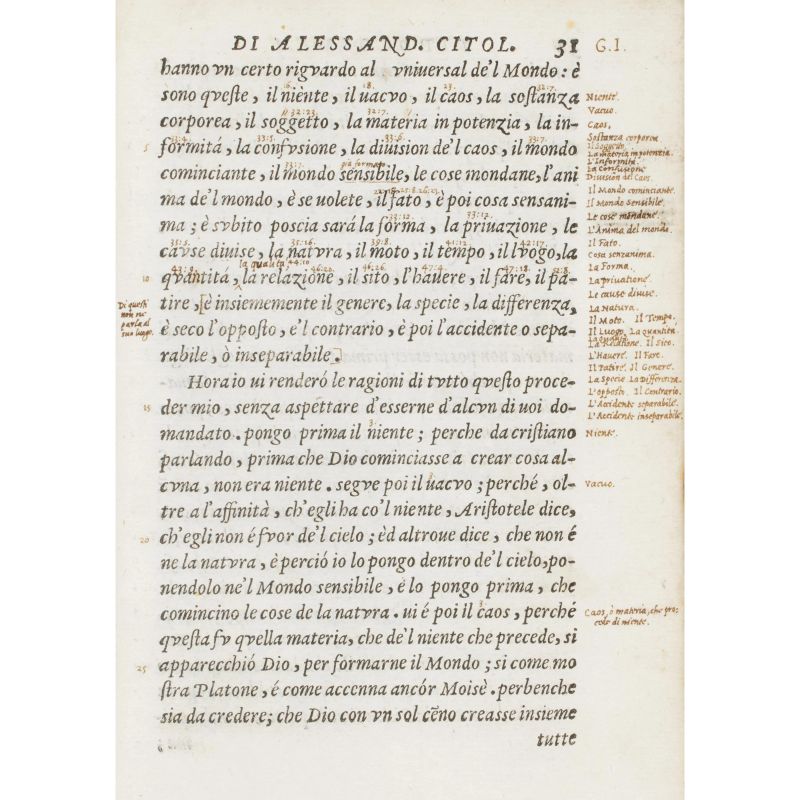 DI ALESSAND. CITOL. 31 G.I.
hanno vn certo rigvardo al vniuersal de'l Mondo: è
sono qveste, il niènte, il uacvo, il caos, la sostanza
corporea, il soggetto, la materia in potenzia, la in-
formitá, la confvsione, la diuision de'l caos, il mondo
cominciante, il mondo sensibile, le cose mondane, l'ani
ma de'l mondo, è se uolete, il fato, è poi cosa sensani-
ma; è svbito poscia sará la forma, la priuazione, le
cavse diuise, la natvra, il moto, il tempo, il lvogo, la
la qualità
qvantitá, la relazione, il sito, l'hauere, il fare, il pa-
tire, [è insiememente il genere, la specie, la differenza,
è seco l'opposto, e'l contrario, è poi l'accidente o sepa-
rabile, ò inseparabile.]
Hora io ui renderó le ragioni di tvtto qvesto proce-
der mio, senza aspettare d'esserne d'alcvn di uoi do-
mandato. pongo prima il niente; perche da cristiano
parlando, prima che Dio cominciasse a crear cosa al-
cvna, non era niente. segve poi il uacvo; perché, ol-
tre a l'affinità, ch'egli ha co'l niente, Aristotele dice,
ch'egli non é fvor de'l cielo; èd altroue dice, che non é
ne la natvra, è perció io lo pongo dentro de'l cielo, po-
nendolo ne'l Mondo sensibile, è lo pongo prima, che
comincino le cose de la natvra. ui é poi il caos, perché
qvesta fv qvella materia, che de'l niente che precede, si
apparecchió Dio, per formarne il Mondo; si come mo
stra Platone, é come accenna ancór Moisè. perbenche
sia da credere; che Dio con vn sol cẽno creasse insieme
tutte
5
10
15
20
25
Di questi
non ne
parla al
suo luogo.
Niente.
Vacuo.
Caos.
Sostanza corporea
Il Soggetto.
La materia in potenzia.
L'Informità.
La Confusione
Division del Caos.
Il Mondo cominciante.
Il Mondo Sensibile.
Le cose mondane.
L'Anima del mondo.
Il Fato.
Cosa senzanima.
La Forma.
La privatione.
Le cause divise.
La Natura.
Il Moto. Il Tempo.
Il Luogo. La Quantità
La Qualità
La Relatione. Il Sito.
L'Havere. Il Fare.
Il Patire. Il Genere.
La Specie La Differenza.
L'opposto. Il Contrario.
L'Accidente separabile.
L'Accidente inseparabile.
Niente.
Vacuo.
Caos, ò materia, che pro-
cede di niente.